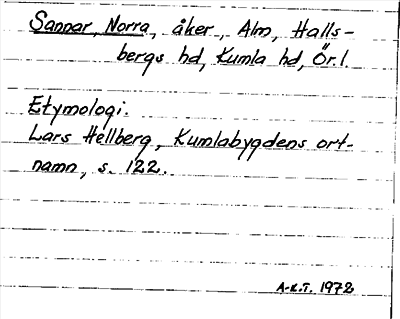 Sannar, Norra, åker, Alm, Halls-
bergs hd, Kumla hd, Ör.l.
Etymologi.
Lars Hellberg, Kumlabygdens ort-
namn, s. 122.
A-K.T. 1972